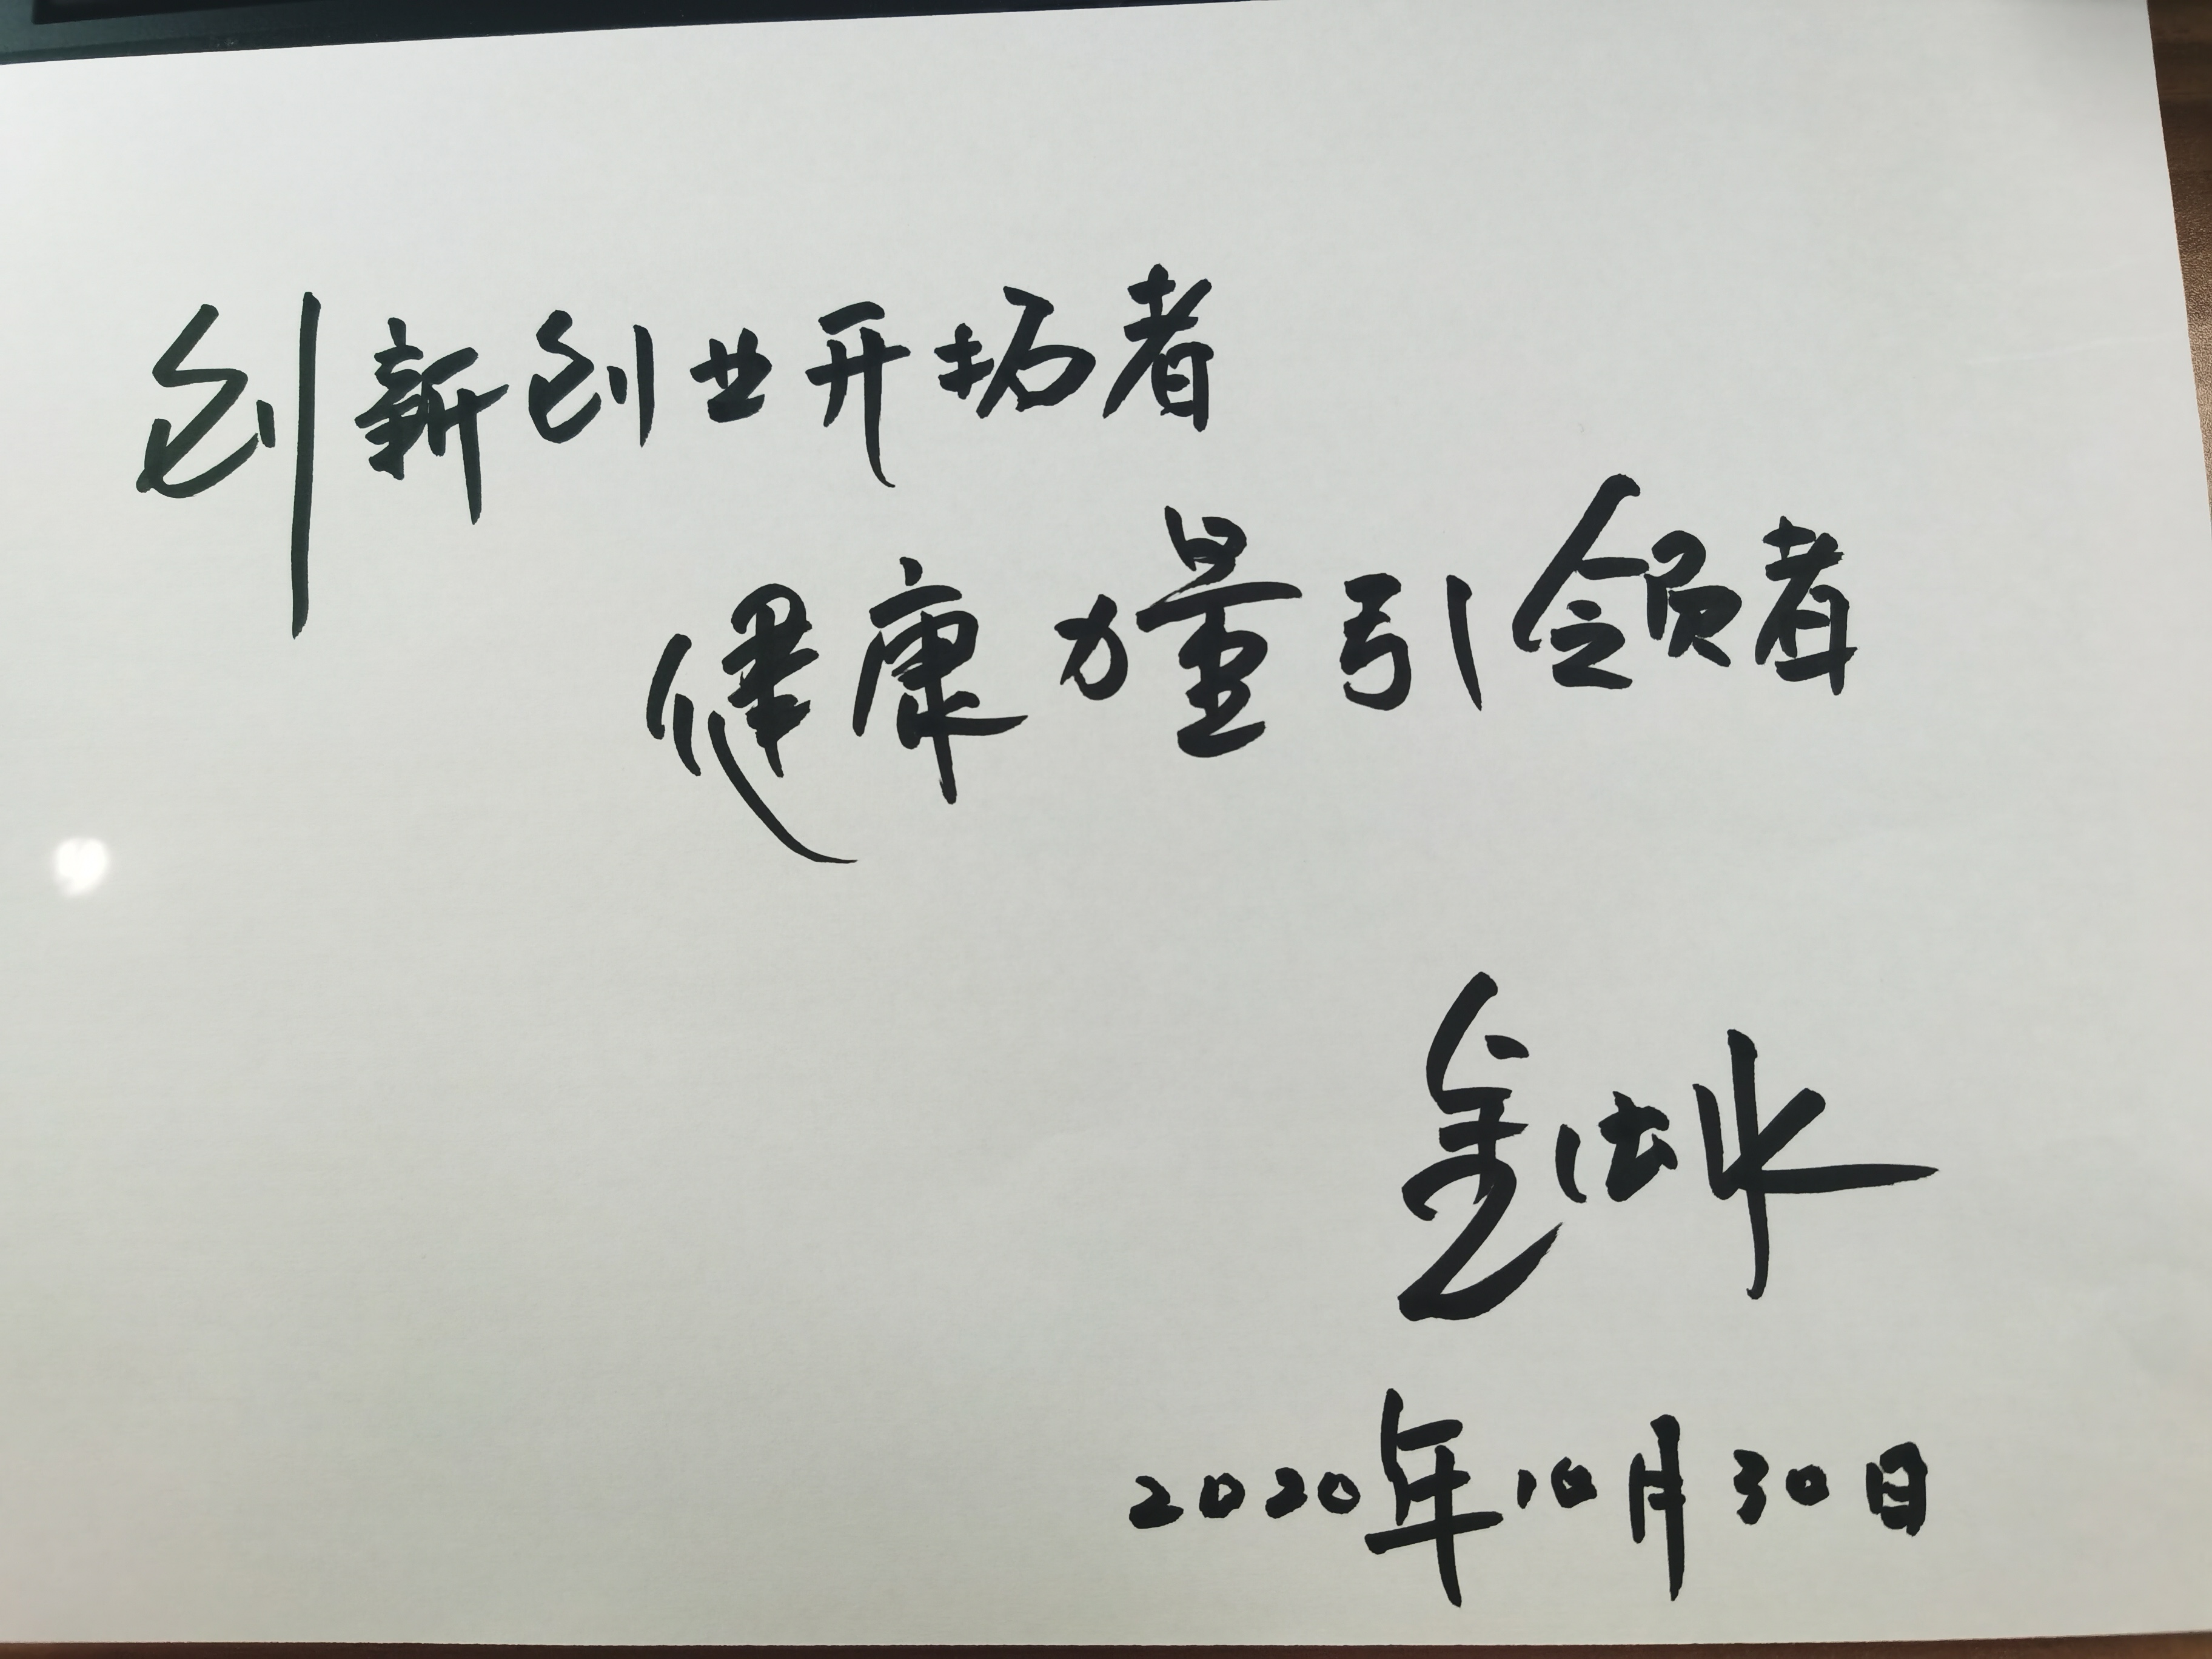 创新创业开拓者
健康力量引领者
金法水
2020年10月30日